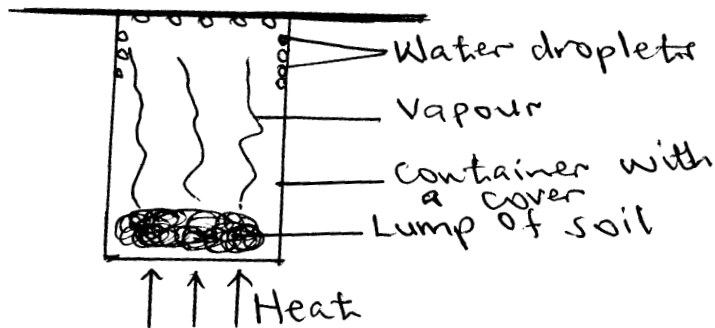 Water droplets
Vapour
Container with
a cover
Lump of soil
Heat